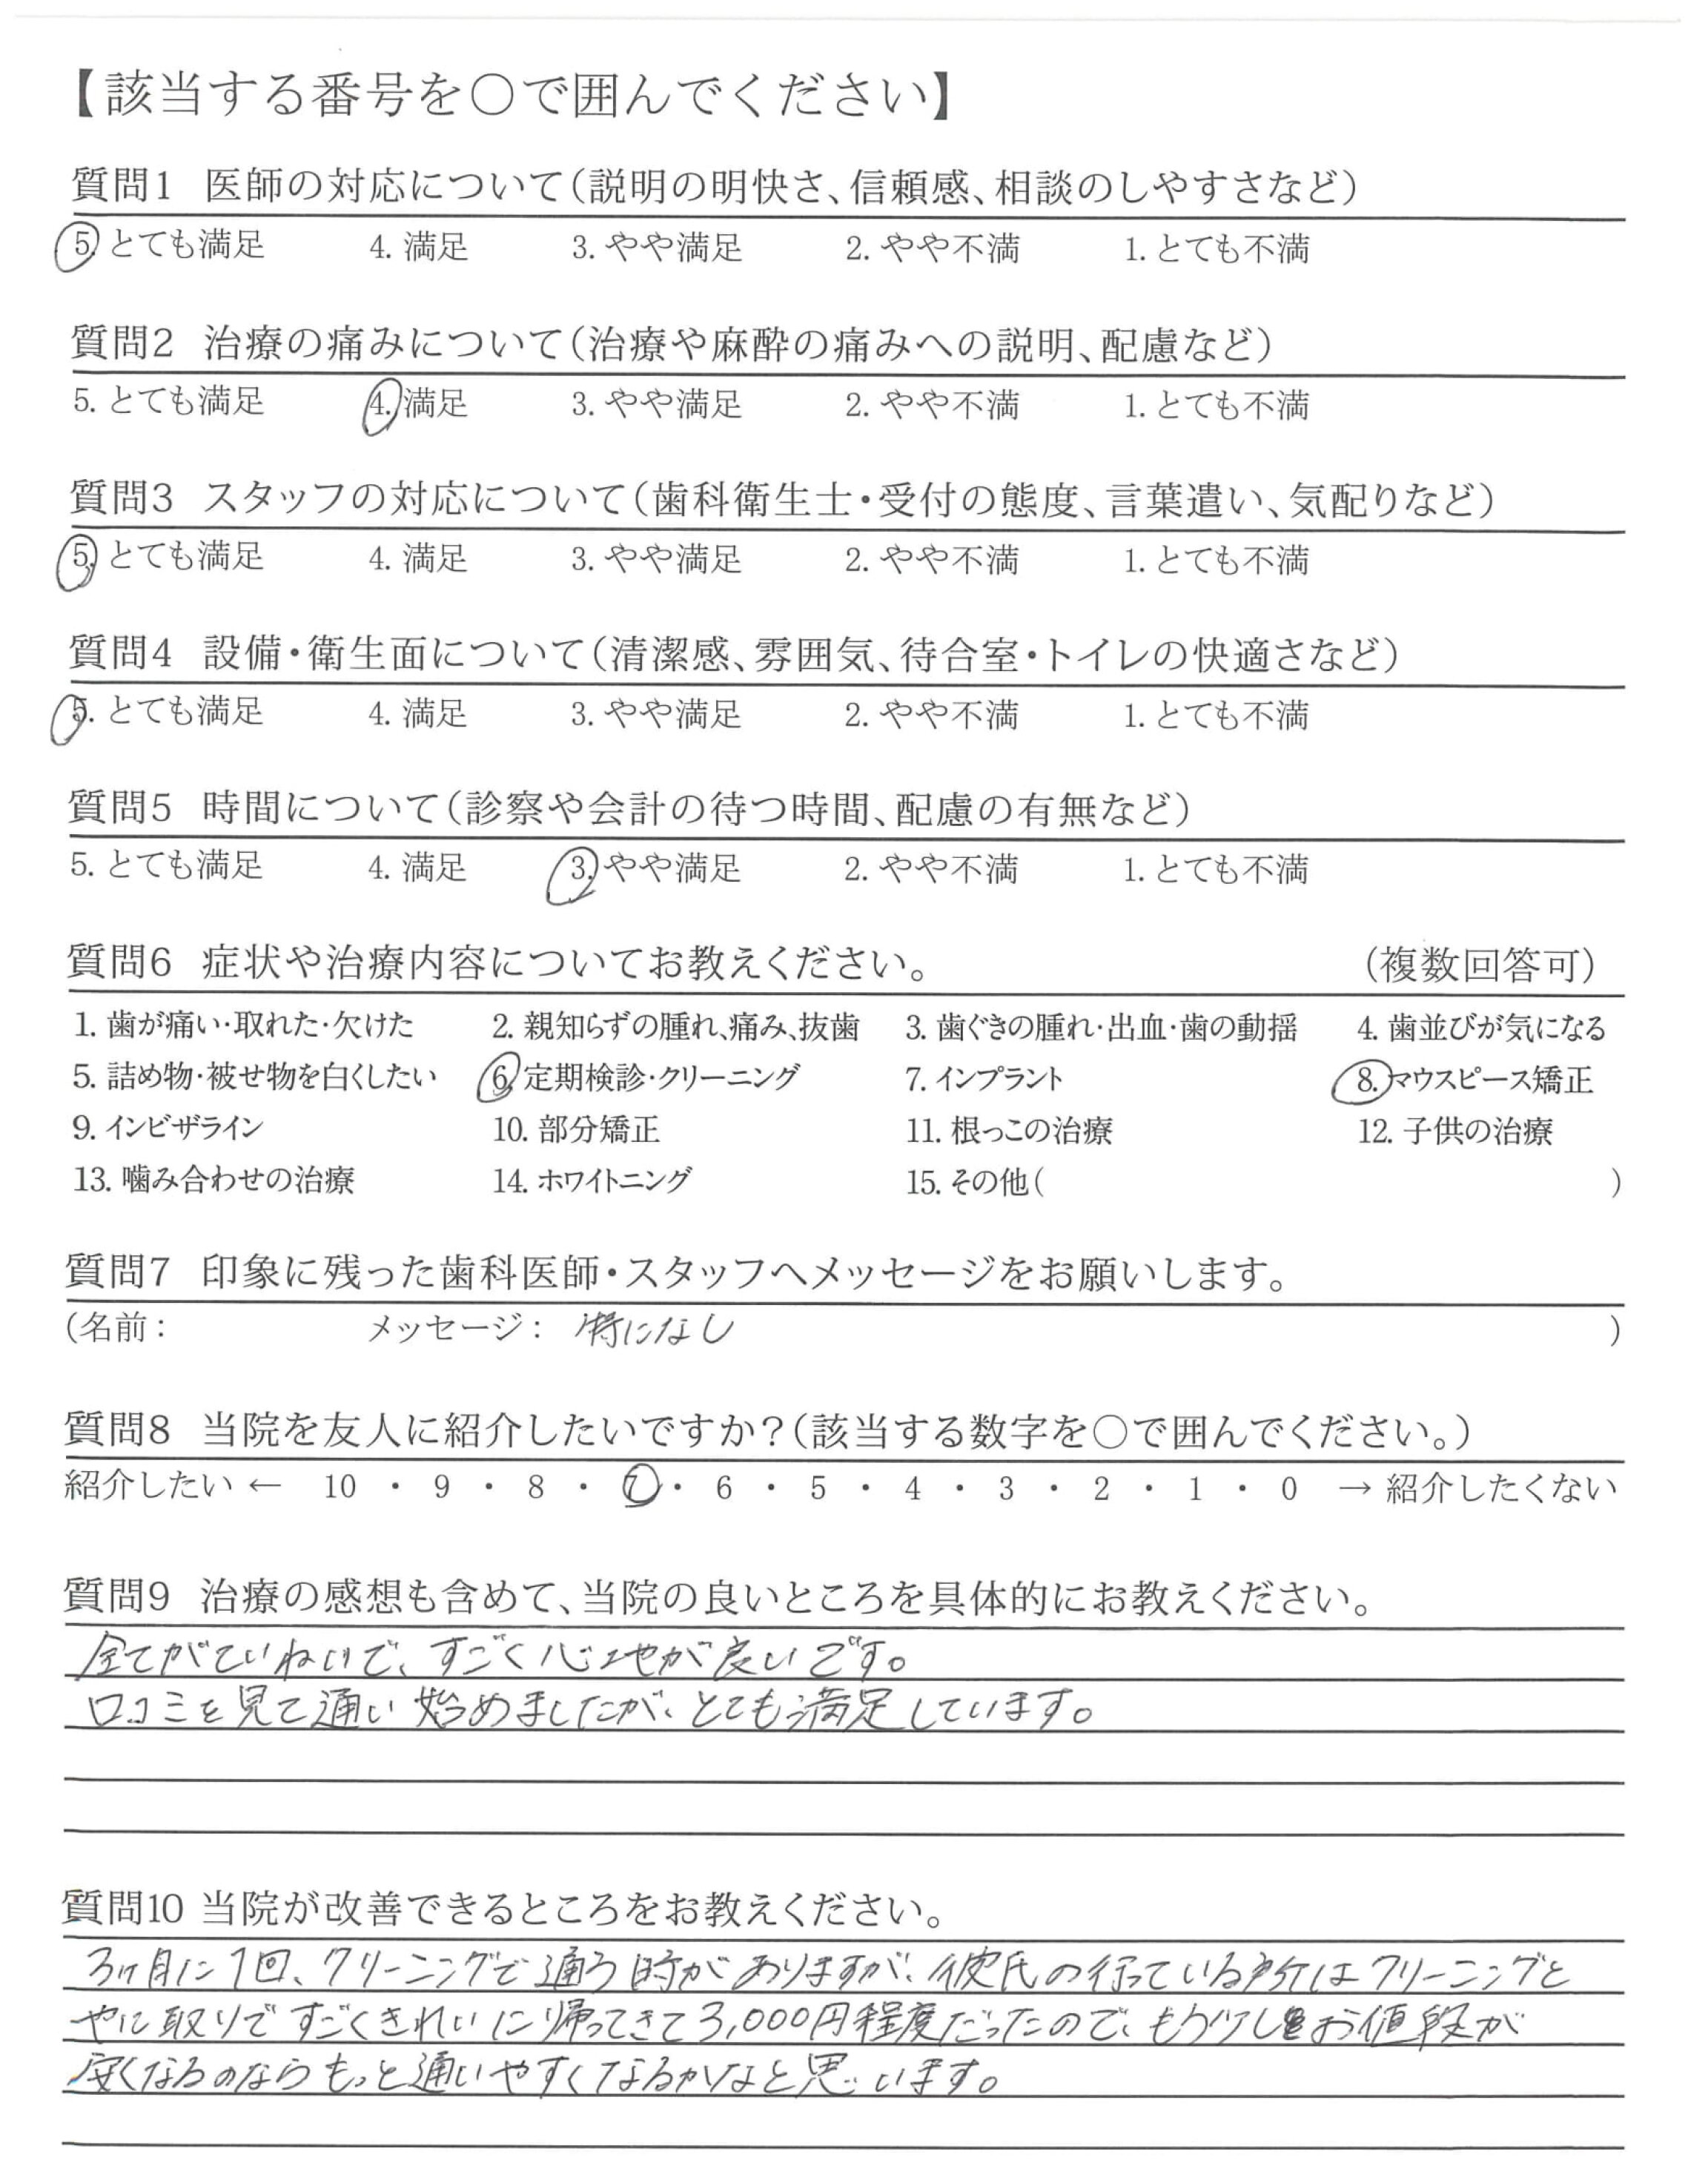 【該当する番号を〇で囲んでください】
質問1 医師の対応について(説明の明快さ、信頼感、相談のしやすさなど)
5. とても満足 4. 満足 3. やや満足 2. やや不満 1. とても不満
質問2 治療の痛みについて(治療や麻酔の痛みへの説明、配慮など)
5. とても満足 4. 満足 3. やや満足 2. やや不満 1. とても不満
質問3 スタッフの対応について(歯科衛生士・受付の態度、言葉遣い、気配りなど)
5. とても満足 4. 満足 3. やや満足 2. やや不満 1. とても不満
質問4 設備・衛生面について(清潔感、雰囲気、待合室・トイレの快適さなど)
5. とても満足 4. 満足 3. やや満足 2. やや不満 1. とても不満
質問5 時間について(診察や会計の待つ時間、配慮の有無など)
5. とても満足 4. 満足 3. やや満足 2. やや不満 1. とても不満
質問6 症状や治療内容についてお教えください。 (複数回答可)
1. 歯が痛い・取れた・欠けた 2. 親知らずの腫れ、痛み、抜歯 3. 歯ぐきの腫れ・出血・歯の動揺 4. 歯並びが気になる
5. 詰め物・被せ物を白くしたい 6. 定期検診・クリーニング 7. インプラント 8. マウスピース矯正
9. インビザライン 10. 部分矯正 11. 根っこの治療 12. 子供の治療
13. 噛み合わせの治療 14. ホワイトニング 15. その他( )
質問7 印象に残った歯科医師・スタッフへメッセージをお願いします。
(名前: メッセージ: 特になし )
質問8 当院を友人に紹介したいですか?(該当する数字を〇で囲んでください。)
紹介したい ← 10 ・ 9 ・ 8 ・ 7 ・ 6 ・ 5 ・ 4 ・ 3 ・ 2 ・ 1 ・ 0 → 紹介したくない
質問9 治療の感想も含めて、当院の良いところを具体的にお教えください。
全てがていねいで、すごく心地が良いです。
口コミを見て通い始めましたが、とても満足しています。
質問10 当院が改善できるところをお教えください。
3ヶ月に1回、クリーニングで通う時がありますが、彼氏の行っている所はクリーニングと
やに取りですごくきれいに帰ってきて3,000円程度だったので、もう少しお値段が
安くなるのならもっと通いやすくなるかなと思います。